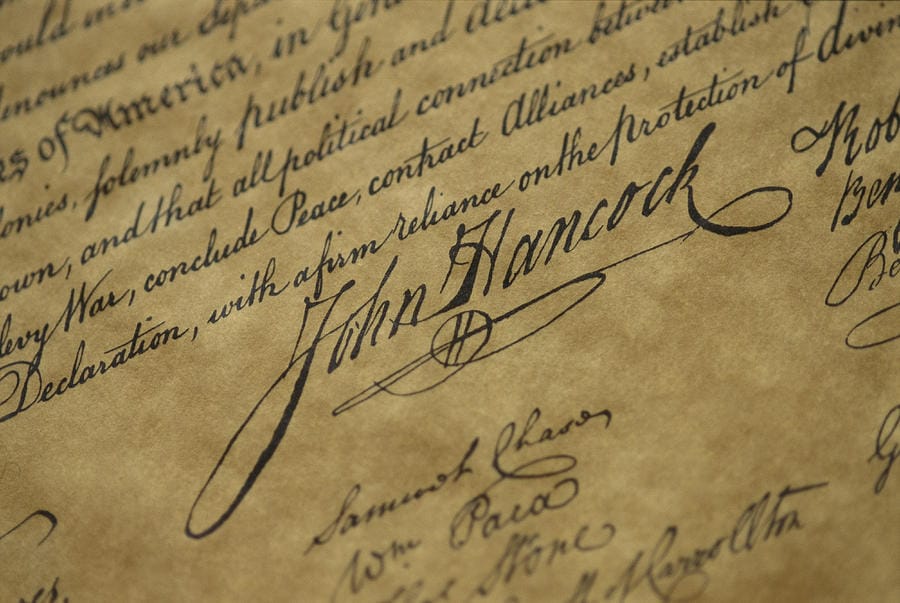 ould
enounces our Sepa
rs of America, in Gen
lonies, solemnly publish and decl
own, and that all political connection betwee
levy War, conclude Peace, contract Alliances, establish
Declaration, with a firm reliance on the protection of divin
John Hancock
Rob
Ben
Be
Samuel Chase
Wm Paca
Stone
Carrollton
G